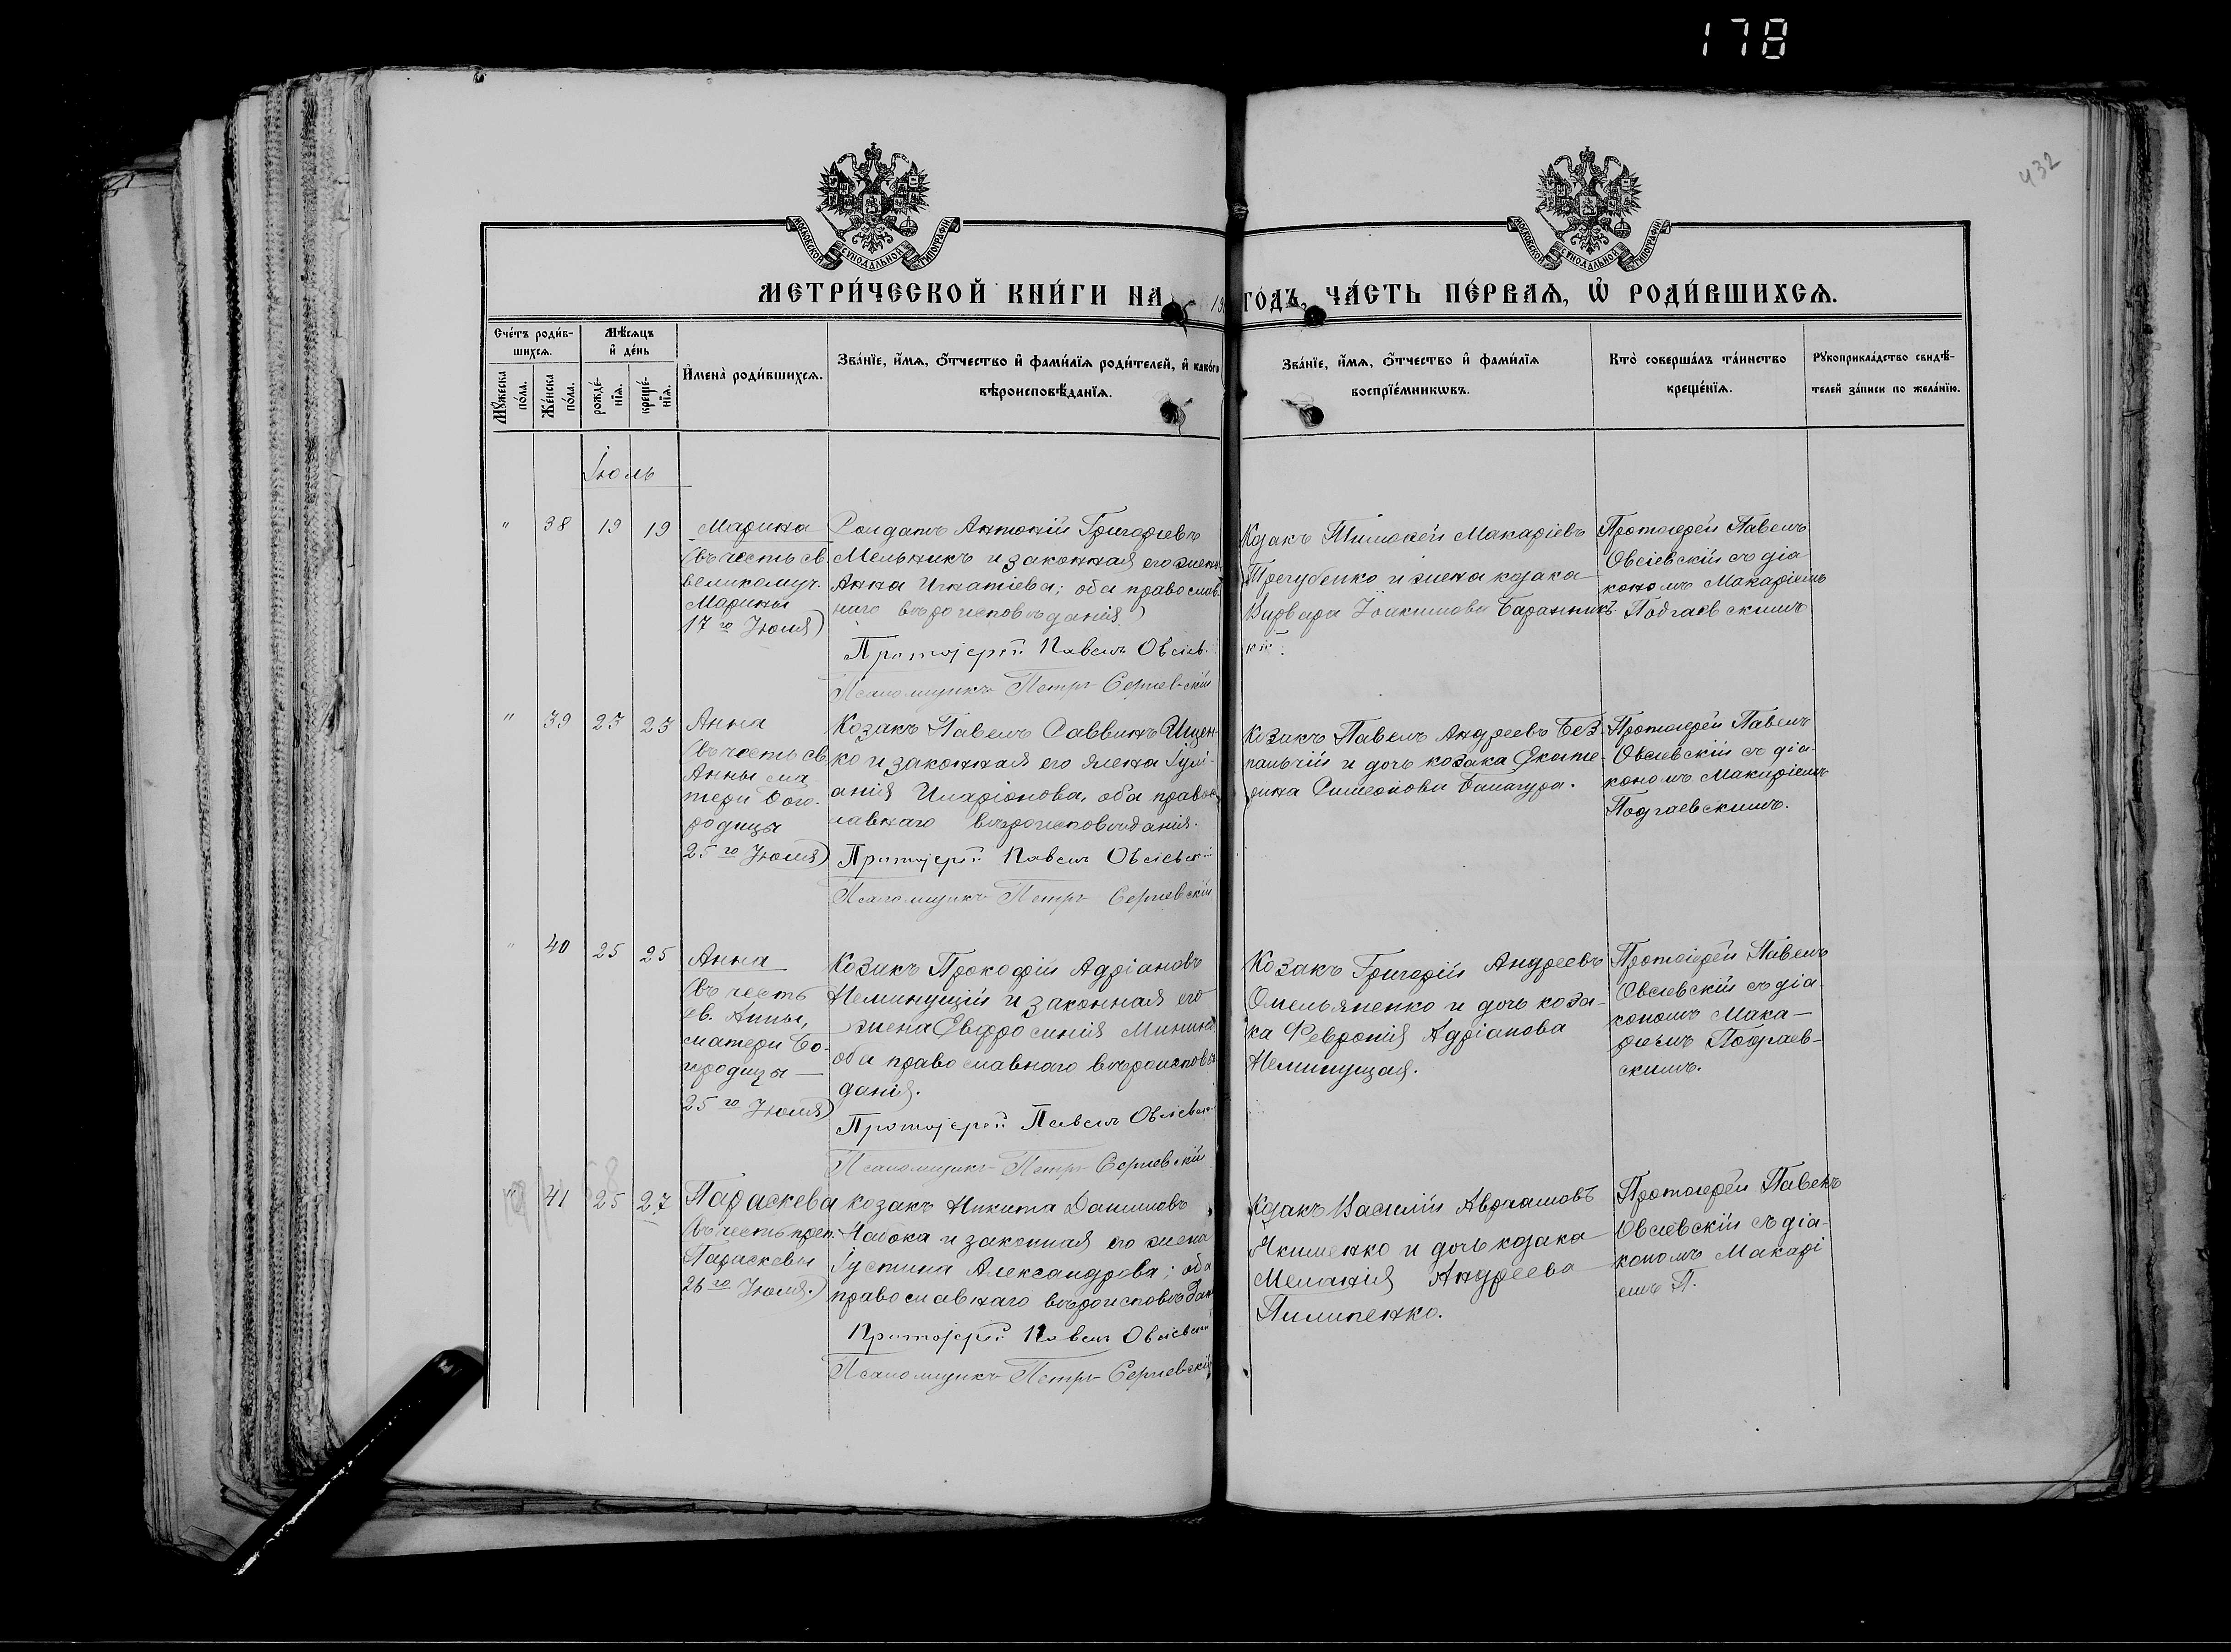 178
432
МОСКОВСКОЙ СѴНОДАЛЬНОЙ ТИПОГРАФІИ
МОСКОВСКОЙ СѴНОДАЛЬНОЙ ТИПОГРАФІИ
МЕТРИ́ЧЕСКОЙ КНИ́ГИ НА 19 ГО́ДЪ, ЧА́СТЬ ПЕ́РВАѦ, Ѡ҆ РОДИ́ВШИХСѦ.
Сче́тъ роди́в-
шихсѧ.
Мꙋ́жеска по́ла.
Же́нска по́ла.
Мѣ́сѧцъ
и҆ де́нь
рожде́-
нїѧ.
креще́-
нїѧ.
И҆мена̀ роди́вшихсѧ.
Зва́нїе, и҆́мѧ, ѻ҆́тчество и҆ фами́лїѧ роди́телей, и҆ како́гѡ
вѣроисповѣ́данїѧ.
Зва́нїе, и҆́мѧ, ѻ҆́тчество и҆ фами́лїѧ
воспрїе́мникѡвъ.
Кто̀ соверша́лъ та́инство
креще́нїѧ.
Рꙋкоприкла́дство свидѣ́-
телей за́писи по жела́нїю.
Іюль
" 38 19 19
Марина
(въ честь св.
великомуч.
Марины
17го Іюля)
Солдатъ Антоній Григоріевъ
Мельникъ и законная его жена
Анна Игнатіева; оба православ.
наго вѣроисповѣданія.
Протоіерей Павелъ Овсіев.
Псаломщикъ Петръ Сергіевскій
Козакъ Тимофей Макаріевъ
Трегубенко и жена козака
Варвара Іоакимова Баранник
Протоіерей Павелъ
Овсіевскій съ діа
кономъ Макаріемъ
Подгаевскимъ
" 39 23 23
Анна
(въ честь св.
Анны ма-
тери Бого-
родицы
25го Іюля)
Козакъ Павелъ Саввинъ Ищен-
ко и законная его жена Іулі-
анія Иларіонова, оба правос
лавнаго вѣроисповѣданія.
Протоіерей Павелъ Овсіевскій
Псаломщикъ Петръ Сергіевскій
Козакъ Павелъ Андреевъ Без-
пальчій и дочь козака Екате-
рина Симеонова Балагура.
Протоіерей Павелъ
Овсіевскій съ діа-
кономъ Макаріемъ
Подгаевскимъ.
" 40 25 25
Анна
(въ честь
св. Анны,
матери Бо-
городицы
25го Іюля)
Козакъ Прокофій Адріановъ
Неминущій и законная его
жена Евфросинія Минина
оба православнаго вѣроисповѣ
данія.
Протоіерей Павелъ Овсіевск
Псаломщикъ Петръ Сергіевскій
Козакъ Григорій Андреевъ
Омельяненко и дочь коза-
ка Февронія Адріанова
Неминущая.
Протоіерей Павелъ
Овсіевскій съ діа
кономъ Мака-
ріемъ Подгаев-
скимъ.
41 25 27
Параскева
(въ честь преп.
Параскевы
26го Іюля.)
козакъ Никита Даниловъ
Набока и законная его жена
Іустина Александрова; оба
православнаго вѣроисповѣдан
Протоіерей Павелъ Овсіевскій
Псаломщикъ Петръ Сергіевскій
Козакъ Василій Авраамовъ
Якименко и дочь козака
Меланія Андреева
Пилипенко.
Протоіерей Павелъ
Овсіевскій съ діа-
кономъ Макарі
емъ П.